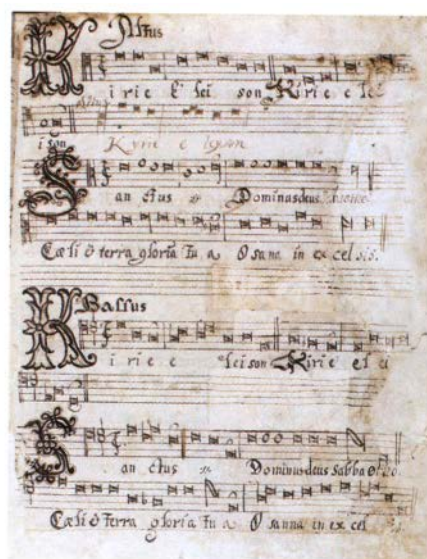 Altus
Kirie e lei son Kirie e lei
ison Kyrie e leyson
Sanctus Dominus deus
Cæli & terra gloria tu a Osana in ex cel sis.
Bassus
Kirie e leison Kirie el ei
Sanctus Dominus deus sabbaoth
Cæli & terra gloria tu a Osanna in ex cel